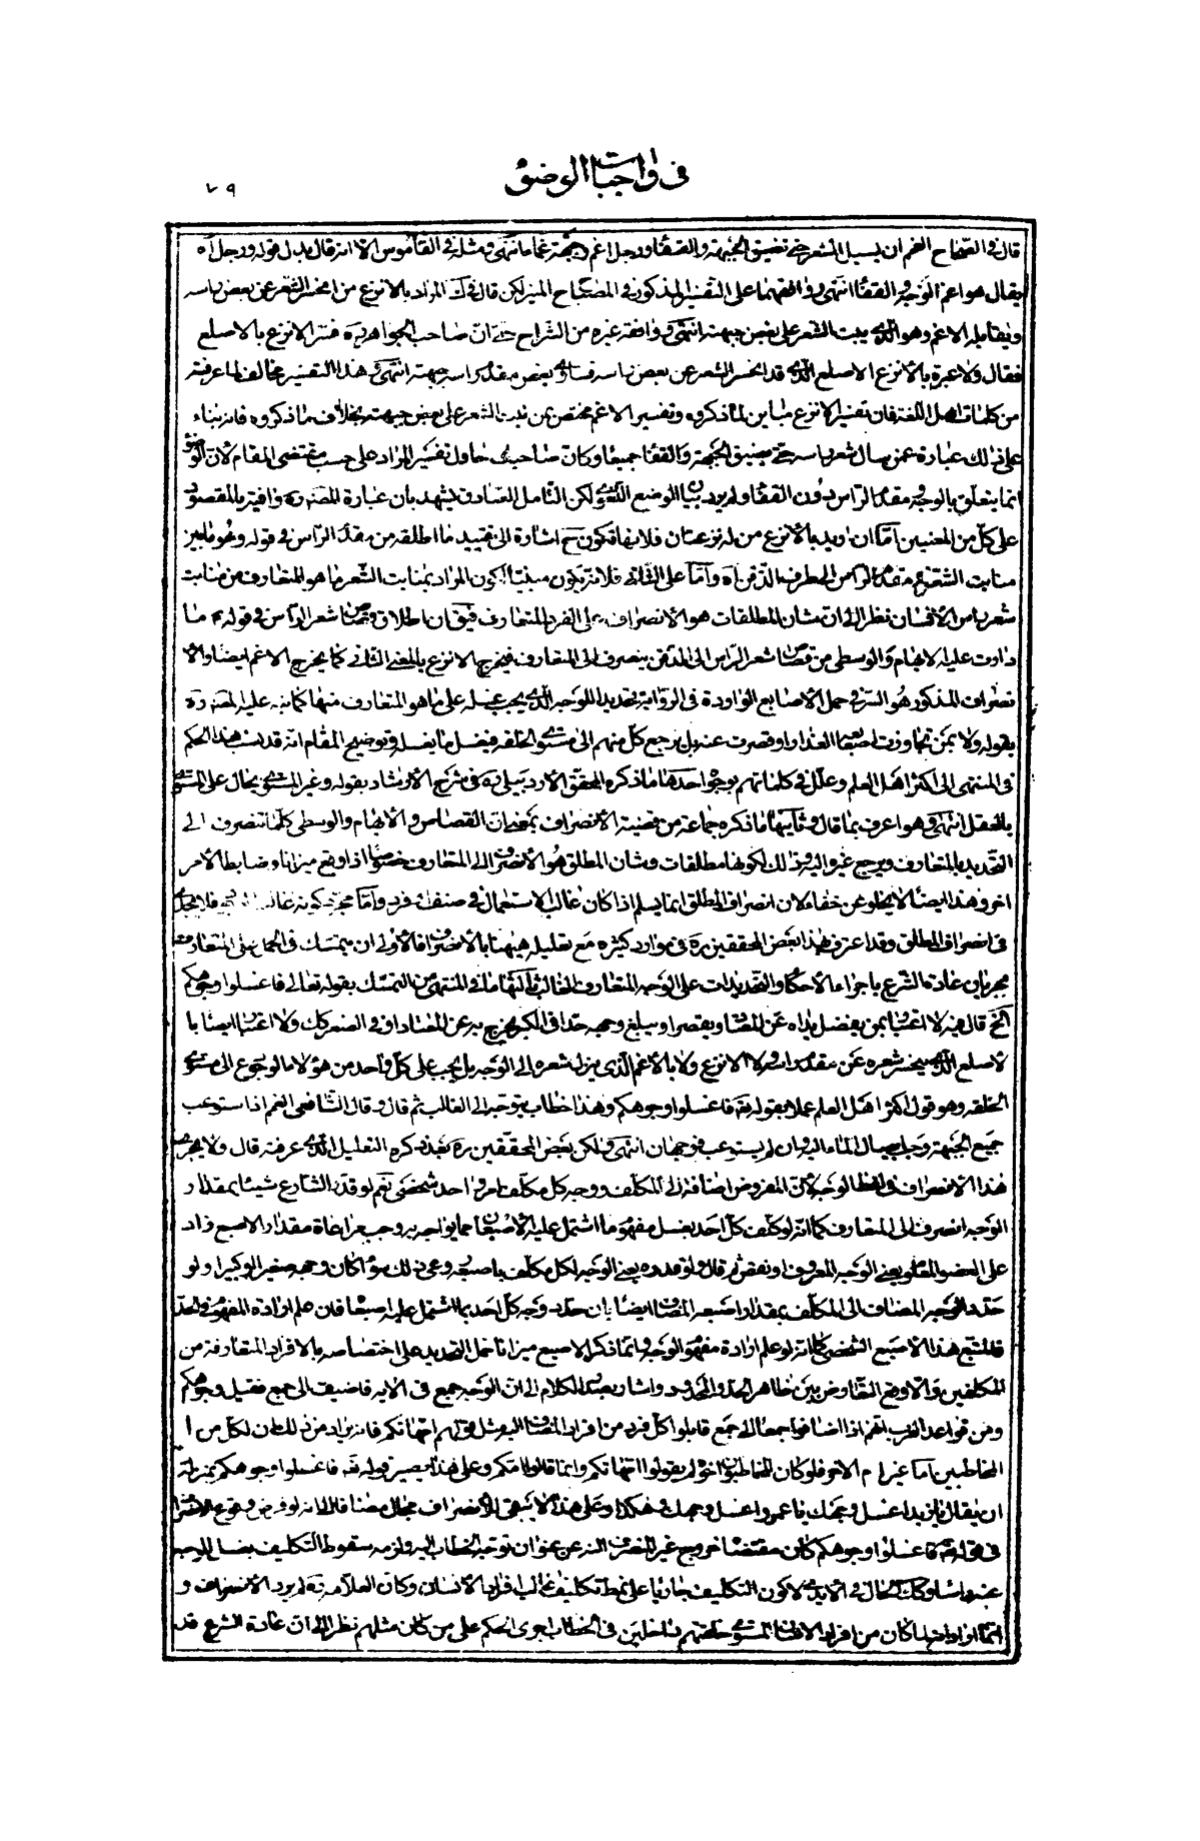 في واجبات الوضوء
٧٩
قال في الصحاح الغمم ان يسيل الشعر حتى تضيق الجبهة والقفا ورجل اغم وجبهة غماء انتهى ومثله في القاموس الا انه قال بدل قوله ورجل اه
يقال هو اغم الوجه والقفا انتهى وافقهما على التفسير المذكور في المصباح المنير لكن قال في ك المراد بالانزع من انحسر الشعر عن بعض راسه
ويقابله الاغم وهو الذي ينبت الشعر على بعض جبهته انتهى ووافقه غيره من الشراح حتى ان صاحب الجواهر ره فسر الانزع بالاصلع
فقال ولا عبرة بالانزع الاصلع الذي قد انحسر الشعر عن بعض راسه فساوى بعض مقدم راسه جبهته انتهى وهذا التفسير مخالف لما عرفته
من كلمات اهل اللغة فان تفسير الانزع مباين لما ذكروه وتفسير الاغم مختص بمن نبت الشعر على بعض جبهته بخلاف ما ذكروه فانه بناء
على ذلك عبارة عمن سال شعر راسه حتى يضيق الجبهة والقفا جميعا وكان صاحب ك حاول تفسير المراد على حسب مقتضى المقام لان الوضوء
انما يتعلق بالوجه ومقدم الراس دون القفا ولم يرد بيان الوضع اللغوي لكن التامل الصادق يشهد بان عبارة المصنف ره وافية بالمقصود
على كل من المعنيين اما ان اريد بالانزع من له نزعتان فلانها تكون ح اشارة الى تقييد ما اطلقه من مقدم الراس في قوله وهو ما بين
منابت الشعر في مقدم الراس الى طرف الذقن اه واما على الثاني فلانه يكون مبنيا لكون المراد بمنابت الشعر ما هو المتعارف من منابت
شعر راس الانسان نظرا الى ان شان المطلقات هو الانصراف الى الفرد المتعارف فيق ان اطلاق قصاص شعر الراس في قوله ع ما
دارت عليه الابهام والوسطى من قصاص شعر الراس الى الذقن ينصرف الى المتعارف فيخرج الانزع بالمعنى الثاني كما يخرج الاغم ايضا والا
نصراف المذكور هو السر في حمل الاصابع الواردة في الرواية تحديدا للوجه الذي يجب غسله على ما هو المتعارف منها كما نبه عليه المصنف ره
بقوله ولا بمن تجاوزت اصابعه العذار او قصرت عنه بل يرجع كل منهم الى مستوى الخلقة فيغسل ما يغسله وتوضيح المقام انه قد نسب هذا الحكم
في المنتهى الى اكثر اهل العلم وعلل في كلماتهم بوجوه احدها ما ذكره المحقق الاردبيلي ره في شرح الارشاد بقوله وغير المستوي يحال على المستوي
بالعقل انتهى وهو اعرف بما قال وثانيها ما ذكره جماعة من قضية الانصراف بمعنى ان القصاص والابهام والوسطى كلها تنصرف الى
التحديد بالمتعارف ويرجع غيره اليه وذلك لكونها مطلقات وشان المطلق هو الانصراف الى المتعارف خصوصا اذا وقع ميزانا وضابطا لامر
اخر وهذا ايضا لا يخلو عن خفاء لان انصراف المطلق انما يسلم اذا كان غالب الاستعمال في صنف او فرد واما مجرد كونه غالب فلا يجدي
في انصراف المطلق وقد اعترف بهذا بعض المحققين ره في موارد كثيرة مع تعليله هيهنا بالانصراف فالاولى ان يتمسك في الحمل على المتعارف
بجريان عادة الشرع باجراء الاحكام والتحديدات على الوجه المتعارف الغالب ثالثها ما في المنتهى من التمسك بقوله تعالى فاغسلوا وجوهكم
الخ قال فيه لا اعتبار بمن يفضل يداه عن المعتاد او يقصر او يبلغ وجهه حدا في الكبر يخرج به عن المعتاد او في الصغر كك ولا اعتبار ايضا با
لاصلع الذي ينحسر شعره عن مقدم راسه ولا الانزع ولا بالاغم الذي ينزل شعره الى الوجه بل يجب على كل واحد من هؤلاء الرجوع الى مستوى
الخلقة وهو قول اكثر اهل العلم عملا بقوله تع فاغسلوا وجوهكم وهذا خطاب يتوجه الى الغالب ثم قال وقال الشافعي الغمم اذا استوعب
جميع الجبهة وجب ايصال الماء اليه وان لم يستوعب فوجهان انتهى ولكن بعض المحققين ره بعد ذكره التعليل الذي عرفته قال ولا يجري
هذا الانصراف في لفظ الوجه لان المفروض اضافته الى المكلف ووجه كل مكلف امر واحد شخصي نعم لو قدر الشارع شيئا بمقدار
الوجه انصرف الى المتعارف كما انه لو كلف كل احد بغسل مفهوم ما اشتمل عليه الاصبعان مما يواجه به وجب مراعاة مقدار الاصبع زاد
على العضو المغسول يعني الوجه المعروف او نقص ثم قال ولو قدره يعني الوجه لكل مكلف باصبعه وعمم ذلك سواء كان وجهه صغيرا او كبيرا ولو
حدد الوجه المضاف الى المكلف بمقدار اصبعه المضاف ايضا بان حدد وجه كل احد بما اشتمل عليه اصبعاه فان علم ارادة المفهوم من احد
فالمتبع هذا الاصبع الشخصي كما انه لو علم ارادة مفهوم الوجه وانما ذكر الاصبع ميزانا حمل التحديد على اختصاصه بالافراد المتعارفة من
المكلفين والا وقع التعارض بين ظاهر الحد والمحدود واشار بهذا الكلام الى ان الوجه جمع في الاية فاضيف الى جمع فقيل وجوهكم
ومن قواعد العرب انهم اذا اضافوا جمعا الى جمع قابلوا كل فرد من افراد المضاف اليه ومثل قولهم امهاتكم فانه يراد من ذلك ان لكل من ا
المخاطبين اما غير ام الاخر فلو كان المخاطبون اخوة لم يقولوا امهاتكم وانما قالوا امكم وعلى هذا يصير قوله تع فاغسلوا وجوهكم بمنزلة
ان يقال يا زيد اغسل وجهك يا عمرو اغسل وجهك وهكذا وعلى هذا لا يبقى للانصراف مجال مضافا الى انه لو فرض وقوع الانصراف
في قوله تع فاغسلوا وجوهكم كان مقتضاه خروج غير المنصرف اليه عن عنوان توجه الخطاب اليه ولزمه سقوط التكليف بغسل الوجه
عنه راسا وكك الحال في الايدي لا كون التكليف جاريا على نمط تكليف غالب افراد الانسان وكان العلامة ره لم يرد الانصراف و
انما اراد انه لما كان من افراد الانسان المستوي خلقتهم داخلين في الخطاب جرى الحكم على من كان مثلهم نظرا الى ان عادة الشرع قد